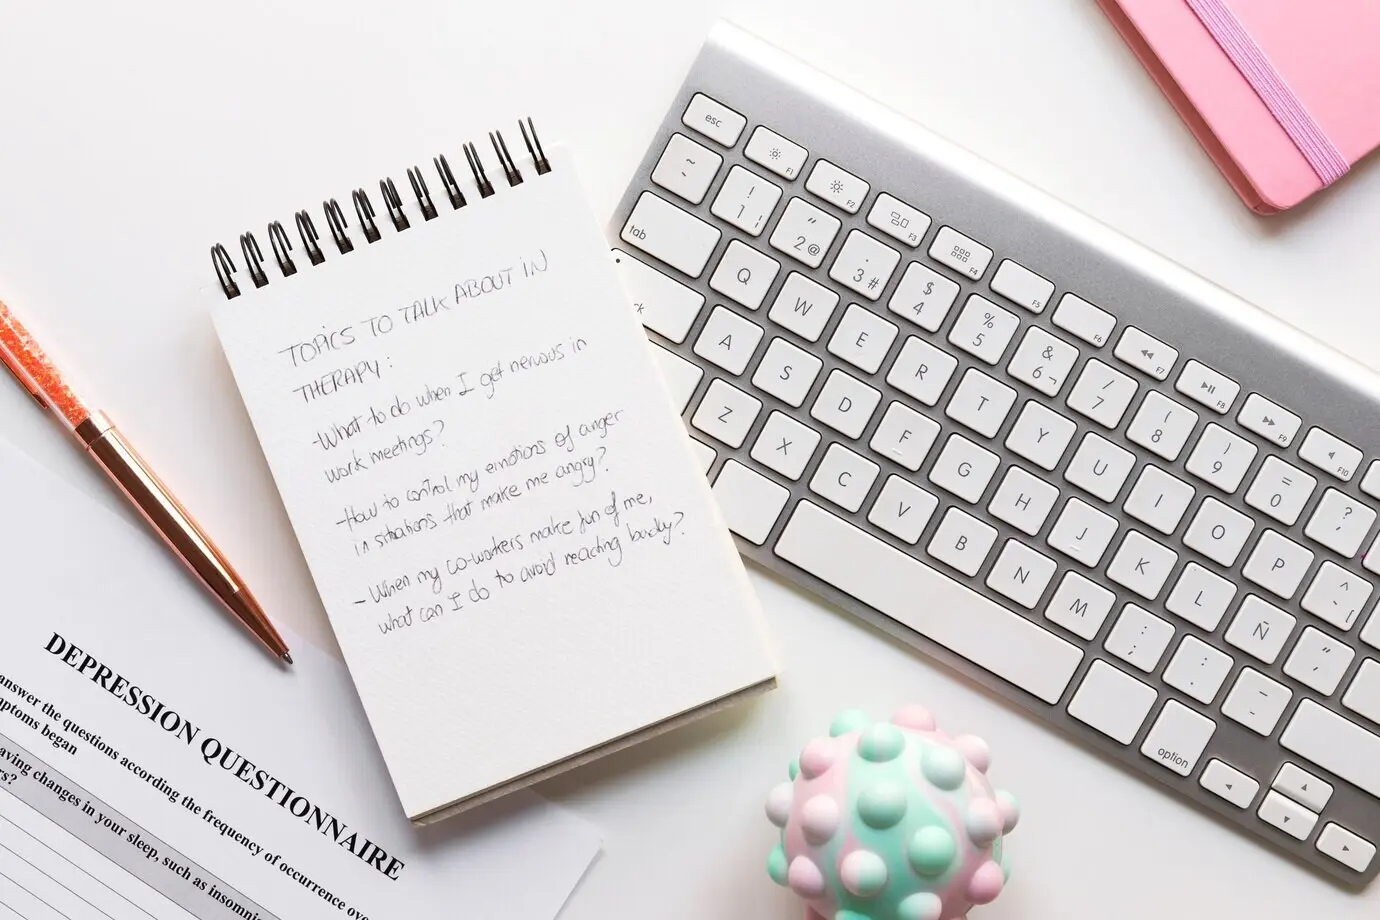 TOPICS TO TALK ABOUT IN
THERAPY:
-What to do when I get nervous in
work meetings?
-How to control my emotions of anger
in situations that make me angry?
- When my co-workers make fun of me,
what can I do to avoid reacting badly?
DEPRESSION QUESTIONNAIRE
answer the questions according the frequency of occurrence
began
changes in your sleep, such as
esc
F1
F2
F3
F4
F5
F6
F7
F8
F9
F10
~ ! 1 " 2 @ · 3 # $ 4 % 5 & 6 ¬ / 7 ( 8 ) 9 = 0 ? '
tab Q W E R T Y U I O P ^
A S D F G H J K L Ñ
Z X C V B N M ; , : . _ -
option